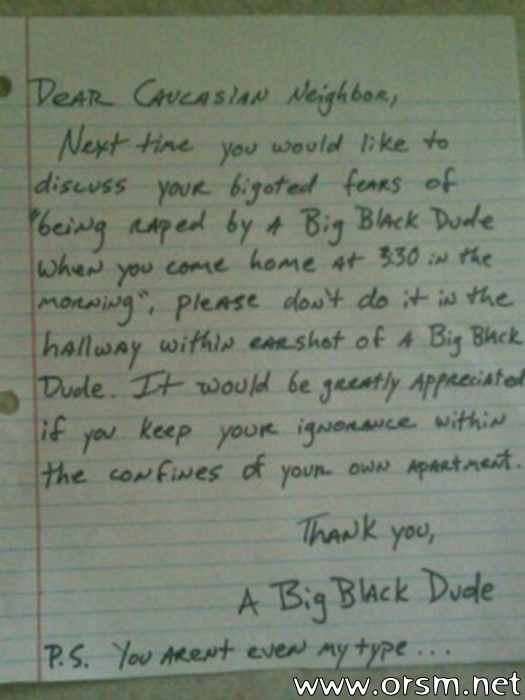 Dear Caucasian Neighbor,
Next time you would like to
discuss your bigoted fears of
"being raped by A Big Black Dude
when you come home at 3:30 in the
morning", please don't do it in the
hallway within earshot of A Big Black
Dude. It would be greatly appreciated
if you keep your ignorance within
the confines of your own apartment.
Thank you,
A Big Black Dude
P.S. You arent even my type ...
www.orsm.net